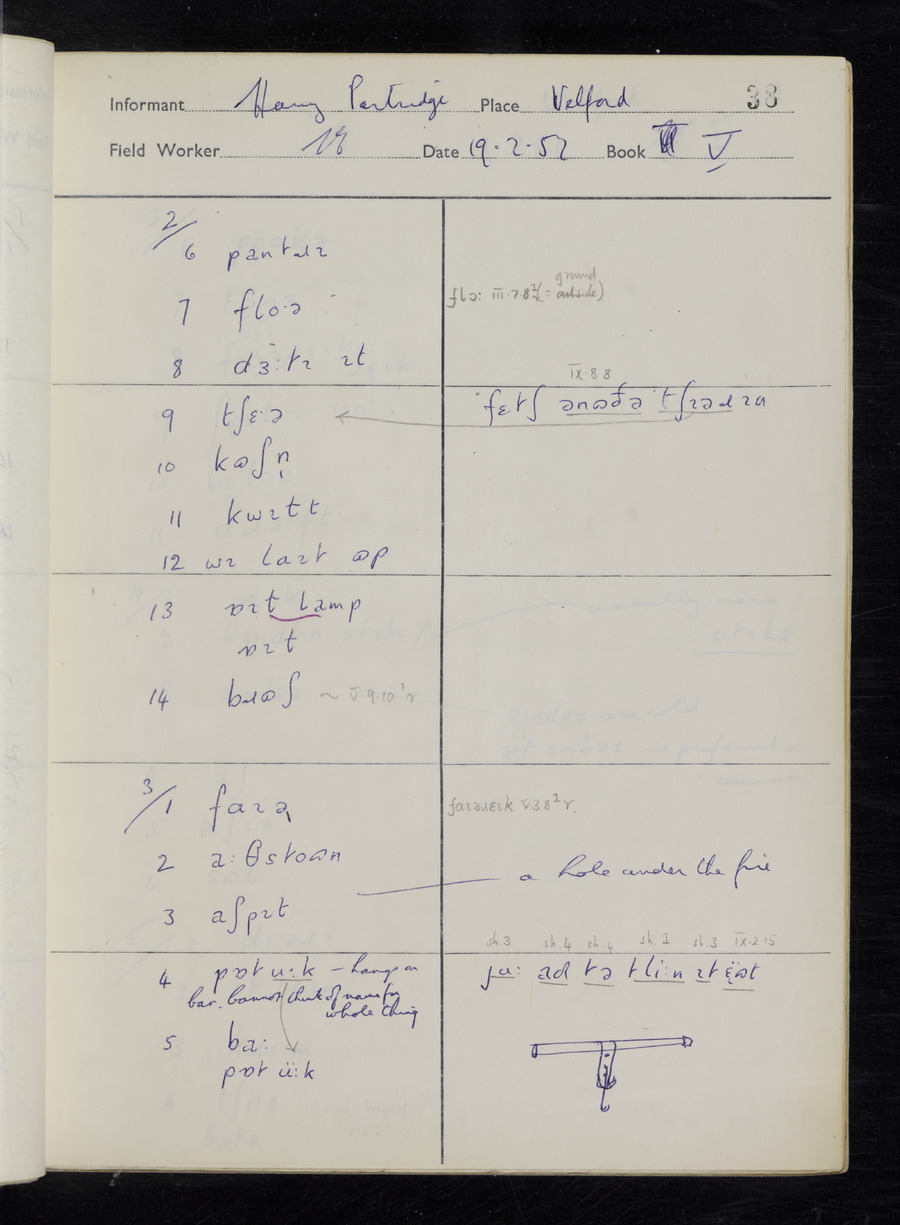 Informant Harry Partridge Place Welford 38
Field Worker Date 19.2.57 Book V
2/
6 pantɹɪ
7 flɔ·ə
flɔ: III.7.8 (= ground outside)
8 dɜ:tɪ ɪt
IX.8.8
9 tʃɛ·ə
fɛtʃ ənɷðə tʃɪə
10 kɷʃn̩
11 kwɪɫt
12 wɪ laɪt ɷp
13 ɒɪɫ lamp
ɒɪɫ
14 bɹɷʃ ~ V.9.10
3/1 faɪə
V.3.8
2 a:θstoɷn
a hole under the fire
3 aʃpɪt
sh.3 sh.4 sh.4 sh.1 sh.3 IX.2.15
4 pɒt u:k – hangs on
bar. Cannot think of name for
whole thing
jü: ad tə kli:n ɪt
5 ba:
pɒt ü:k